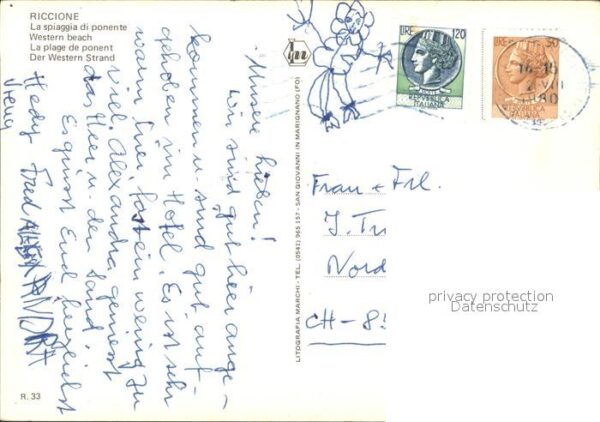 RICCIONE
La spiaggia di ponente
Western beach
La plage de ponent
Der Western Strand
Meine Lieben!
Wir sind gut hier ange-
kommen u. sind gut auf-
gehoben im Hotel. Es ist sehr
warm hier, fast ein wenig zu
viel. Alexandra geniesst
das Meer u. den Sand.
Es grüsst Euch herzlichst
Hedy Fred ALEXANDRA
R. 33
LITOGRAFIA MARCHI - TEL. (0541) 965 157 - SAN GIOVANNI IN MARIGNANO (FO)
LIRE 120
REPUBBLICA
ITALIANA
LIRE 50
REPUBBLICA
ITALIANA
Frau + Frl.
J. Tr
Nord
CH - 8
privacy protection
Datenschutz